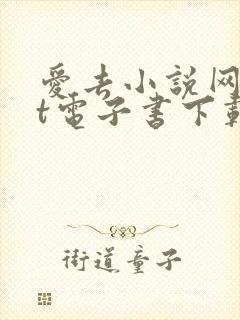 愛去小説网
t電子書下載
街道童子